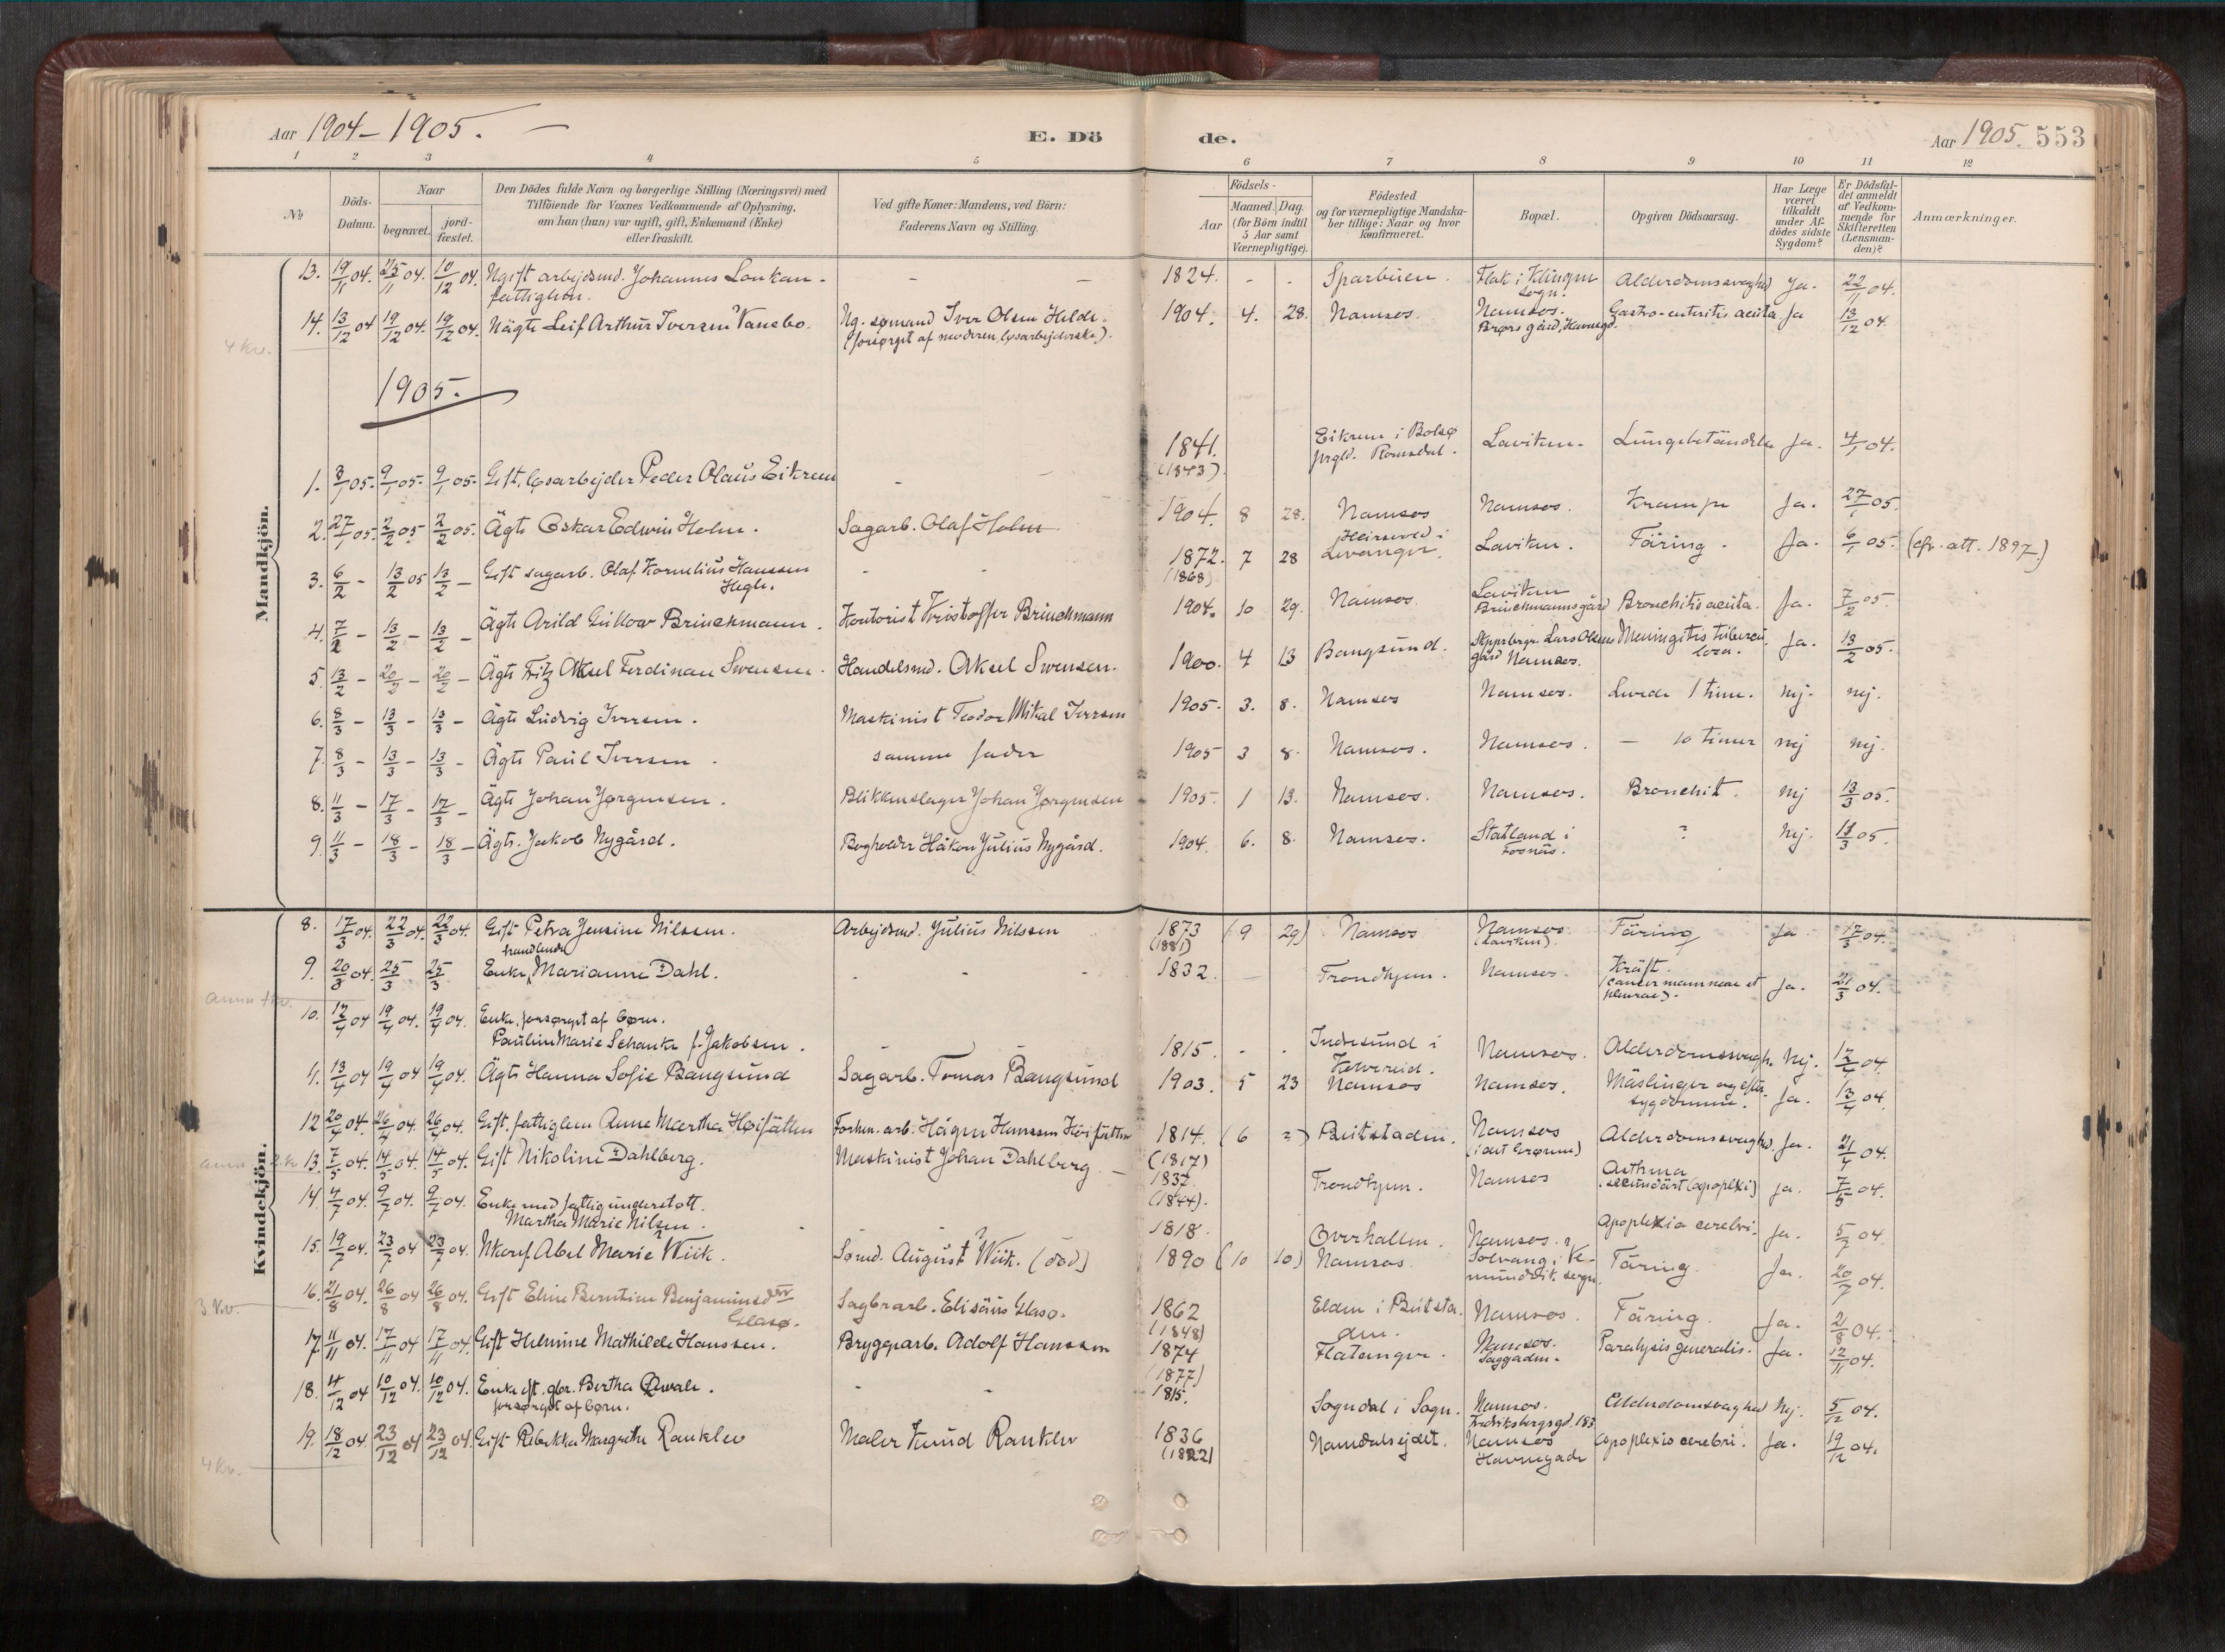 Aar 1904-1905.
E. Dö
de.
Aar 1905. 553
1 2 3 4 5 6 7 8 9 10 11 12
No
Döds-Datum.
Naar
begravet.
jord-fæstet.
Den Dödes fulde Navn og borgerlige Stilling (Næringsvei) med
Tilföiende for Voxnes Vedkommende af Oplysning,
om han (hun) var ugift, gift, Enkemand (Enke)
eller fraskilt.
Ved gifte Koner: Mandens, ved Börn:
Faderens Navn og Stilling.
Födsels-
Aar
Maaned. Dag.
(for Börn indtil
5 Aar samt
Værnepligtige).
Födested
og for værnepligtige Mandska-
ber tillige: Naar og hvor
konfirmeret.
Bopæl.
Opgiven Dödsaarsag.
Har Læge
været
tilkaldt
under Af-
dödes sidste
Sygdom?
Er Dödsfal-
det anmeldt
af Vedkom-
mende for
Skifteretten
(Lensman-
den)?
Anmærkninger.
Mandkjön.
13. 19/11 04. 25/11 04. 10/12 04. Ugift arbejdsmd. Johannes Lonkan - - - 1824. - - Sparbuen. Flak i Klingen Alderdomssvaghed Ja. 22/11 04.
fattiglem. sogn.
14. 13/12 04 19/12 04. 19/12 04. Uägte Leif Arthur Iversen Vanebo. Ug. sømand Iver Olsen Helde. 1904. 4. 28. Namsos. Namsos. Gastro-enteritis acuta Ja 13/12 04.
(forsørget af moderen, løsarbejderske). Brørs gård, Havnegd.
4 kv.
1905.
1. 3/1 05. 9/1 05. 9/1 05. Gift, løsarbejder Peder Olaus Eikrem - 1841. (1843). Eikrem i Bolsø prgld. Romsdal. Laviken. Lungebetändelse Ja. 4/1 04.
2. 27/1 05. 2/2 05 2/2 05. Ägte Oskar Edwin Holm. Sagarb. Olaf Holm 1904. 8 28. Namsos Namsos. Krampe Ja. 27/1 05.
3. 6/2 - 13/2 05 13/2 - Gift sagarb. Olaf Kornelius Hanssen Hegle. - - 1872. (1868) 7 28 Levanger. Laviken. Täring. Ja. 6/1 05. (cfr. att. 1897.)
4. 7/2 - 13/2 - 13/2 - Ägte Arild Gullow Brinchmann. Kontorist Kristoffer Brinchmann 1904. 10 29. Namsos. Laviken Brinchmannsgård Bronchitis acuta. Ja. 7/2 05.
5. 13/2 - 20/2 - 20/2 - Ägte Fritz Aksel Ferdinan Swensen. Handelsmd. Aksel Swensen. 1900. 4 13 Bangsund. Lars Olsens gård Namsos. Meningitis tubercu losa. Ja. 13/2 05.
6. 8/3 - 13/3 - 13/3 - Ägte Ludvig Iversen. Maskinist Teodor Mikal Iversen 1905. 3. 8. Namsos Namsos. Levede 1 time. nej. nej.
7. 8/3 - 13/3 - 13/3 - Ägte Paul Iversen. samme fader 1905 3 8. Namsos. Namsos. - 10 timer nej nej.
8. 11/3 - 17/3 - 17/3 - Ägte Johan Jørgensen. Blikkenslager Johan Jørgensen 1905. 1 13. Namsos. Namsos. Bronchit. nej 13/3 05.
9. 11/3 - 18/3 - 18/3 - Ägte. Jakob Nygård. Bogholder Håkon Julius Nygård. 1904. 6. 8. Namsos. Statland i Fosnäs. ? Nej. 13/3 05.
Kvindekjön.
8. 17/3 04. 22/3 04. 22/3 04. Gift Petra Jensine Nilssen. Arbejdsmd. Julius Nilssen 1873 (1881) (9 29) Namsos Namsos (Laviken). Täring Ja 17/3 04.
9. 20/3 04 25/3 25/3 Enke, handlende Marianne Dahl. - - - 1832. - Trondhjem. Namsos. Kräft. (cancer mammae et pleurae). Ja. 21/3 04.
10. 12/4 04 19/4 04. 19/4 04. Enke, forsørget af børn.
Pauline Marie Schanke f. Jakobsen. - - 1815. - - Indresund i Kolvereid. Namsos. Alderdomssvagh. Nej. 12/4 04.
11. 13/4 04 19/4 04 19/4 04. Ägte Hanna Sofie Bangsund Sagarb. Tomas Bangsund 1903. 5 23 Namsos Namsos. Mäslinger og efter-sygdomme. Ja. 13/4 04.
12 20/4 04. 26/4 04. 26/4 04. Gift, fattiglem Anne Martha Høifätten Forhen. arb. Hågen Hanssen Høifätten 1814. (1817) (6 ?) Beitstaden. Namsos (i det Grønne) Alderdomssvaghed. Ja. 21/4 04.
13. 7/5 04. 14/5 04. 14/5 04. Gift Nikoline Dahlberg. Maskinist Johan Dahlberg - 1837. (1844). Trondhjem. Namsos Asthma secundärt (apoplexi) Ja. 7/5 04.
14 4/7 04. 9/7 04. 9/7 04. Enke med fattigunderstøtt.
Martha Marie Nilsen. - 1818. Overhallen. Namsos. Apoplexia cerebri. Ja. 5/7 04.
15. 19/7 04. 23/7 04 23/7 04. Ukonf. Abel Marie Wiik. Sømd. August Wiik. (død) 1890 (10 10) Namsos. Solvang i Ve-mundvik sogn. Täring. Ja. 20/7 04.
16. 21/8 04. 26/8 04 26/8 04. Gift Eline Berntine Benjaminsd Glasø. Sagbrarb. Elisäus Glasø. 1862 (1848) Elden i Beitsta-den. Namsos. Täring. Ja. 21/8 04.
3 Kv.
17. 11/11 04. 17/11 04 17/11 04. Gift Helmine Mathilde Hanssen. Bryggearb. Adolf Hanssen 1874 (1877) Flatanger. Namsos. Saggaden. Paralysis generalis. Ja. 12/11 04.
18. 4/12 04 10/12 04. 10/12 04. Enke eft. gbr. Bertha Qwale.
forsørget af børn. - - 1815. Sogndal i Sogn. Namsos. Fredriksbergsgd. 183 Alderdomssvaghed Nej. 5/12 04.
19. 18/12 04. 23/12 04 23/12 04. Gift Rebekka Margrethe Ranklev Maler Knud Ranklev 1836 (1822) Namdalsejdet. Namsos Havnegade Apoplexia cerebri. Ja. 19/12 04.
4 Kv.